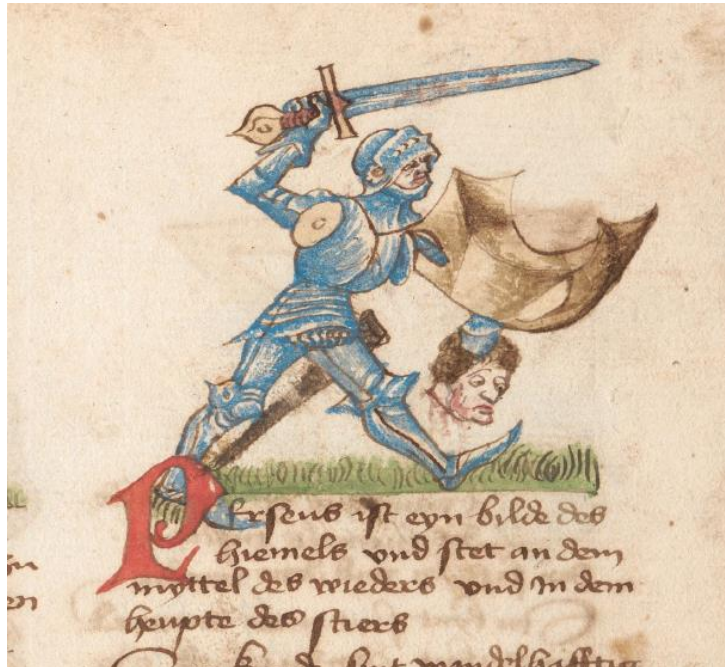 Perseus ist eyn bilde des
hiemels vnd stet an dem
myttel des wieders vnd In dem
heupte des stiers